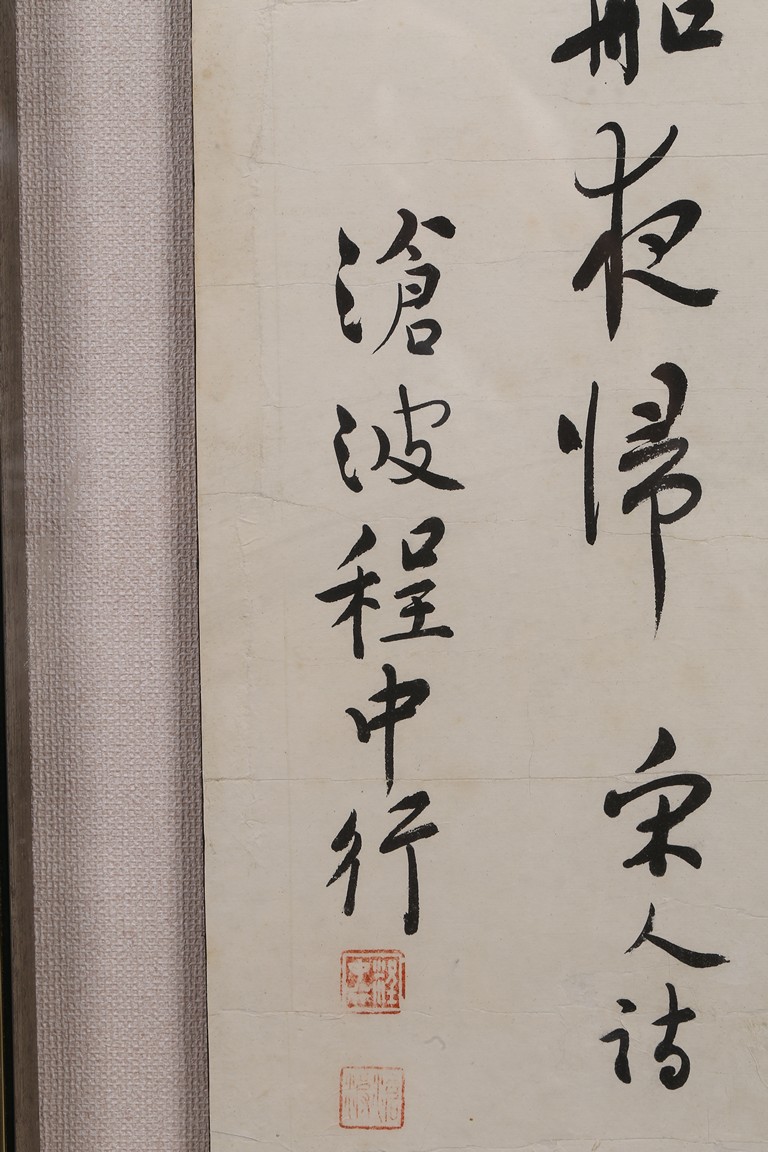 船夜歸 宋人詩
滄波程中行